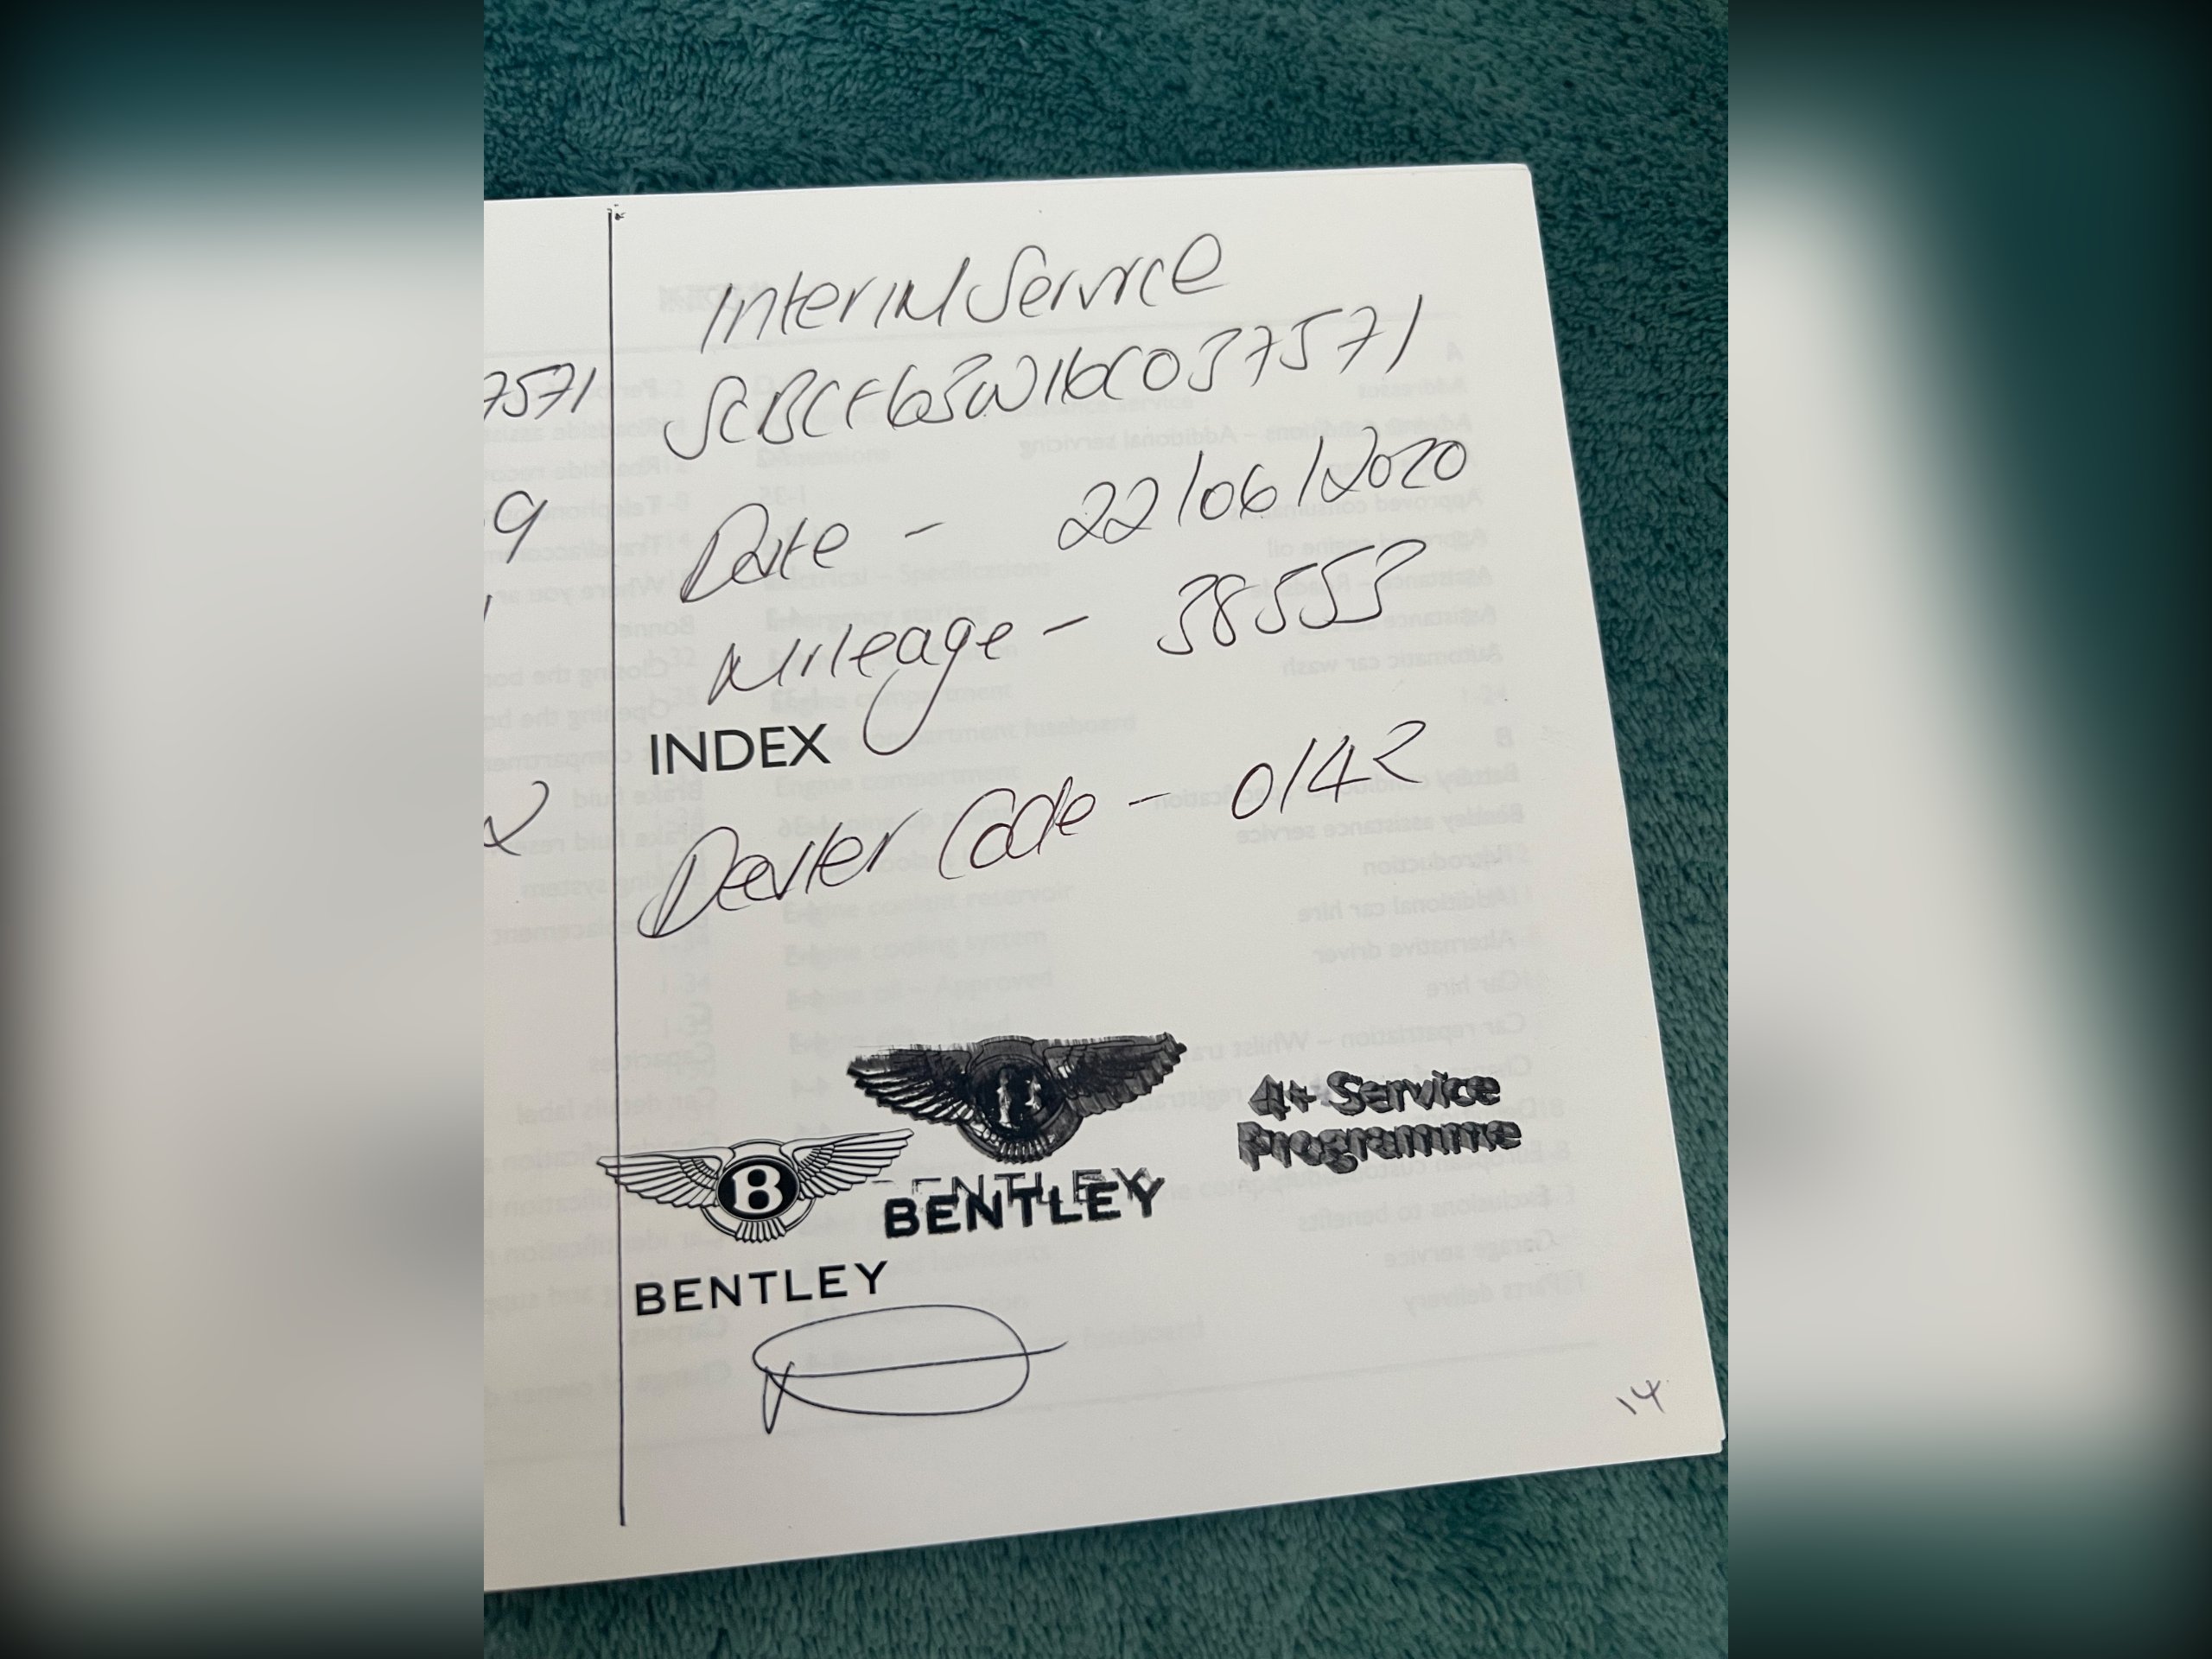 Interim Service
SCBCF63W16C037571
7571
Date - 22/06/2020
9
Mileage - 38553
INDEX
Dealer Code - 0142
2
4+ Service
Programme
B
BENTLEY
BENTLEY
14